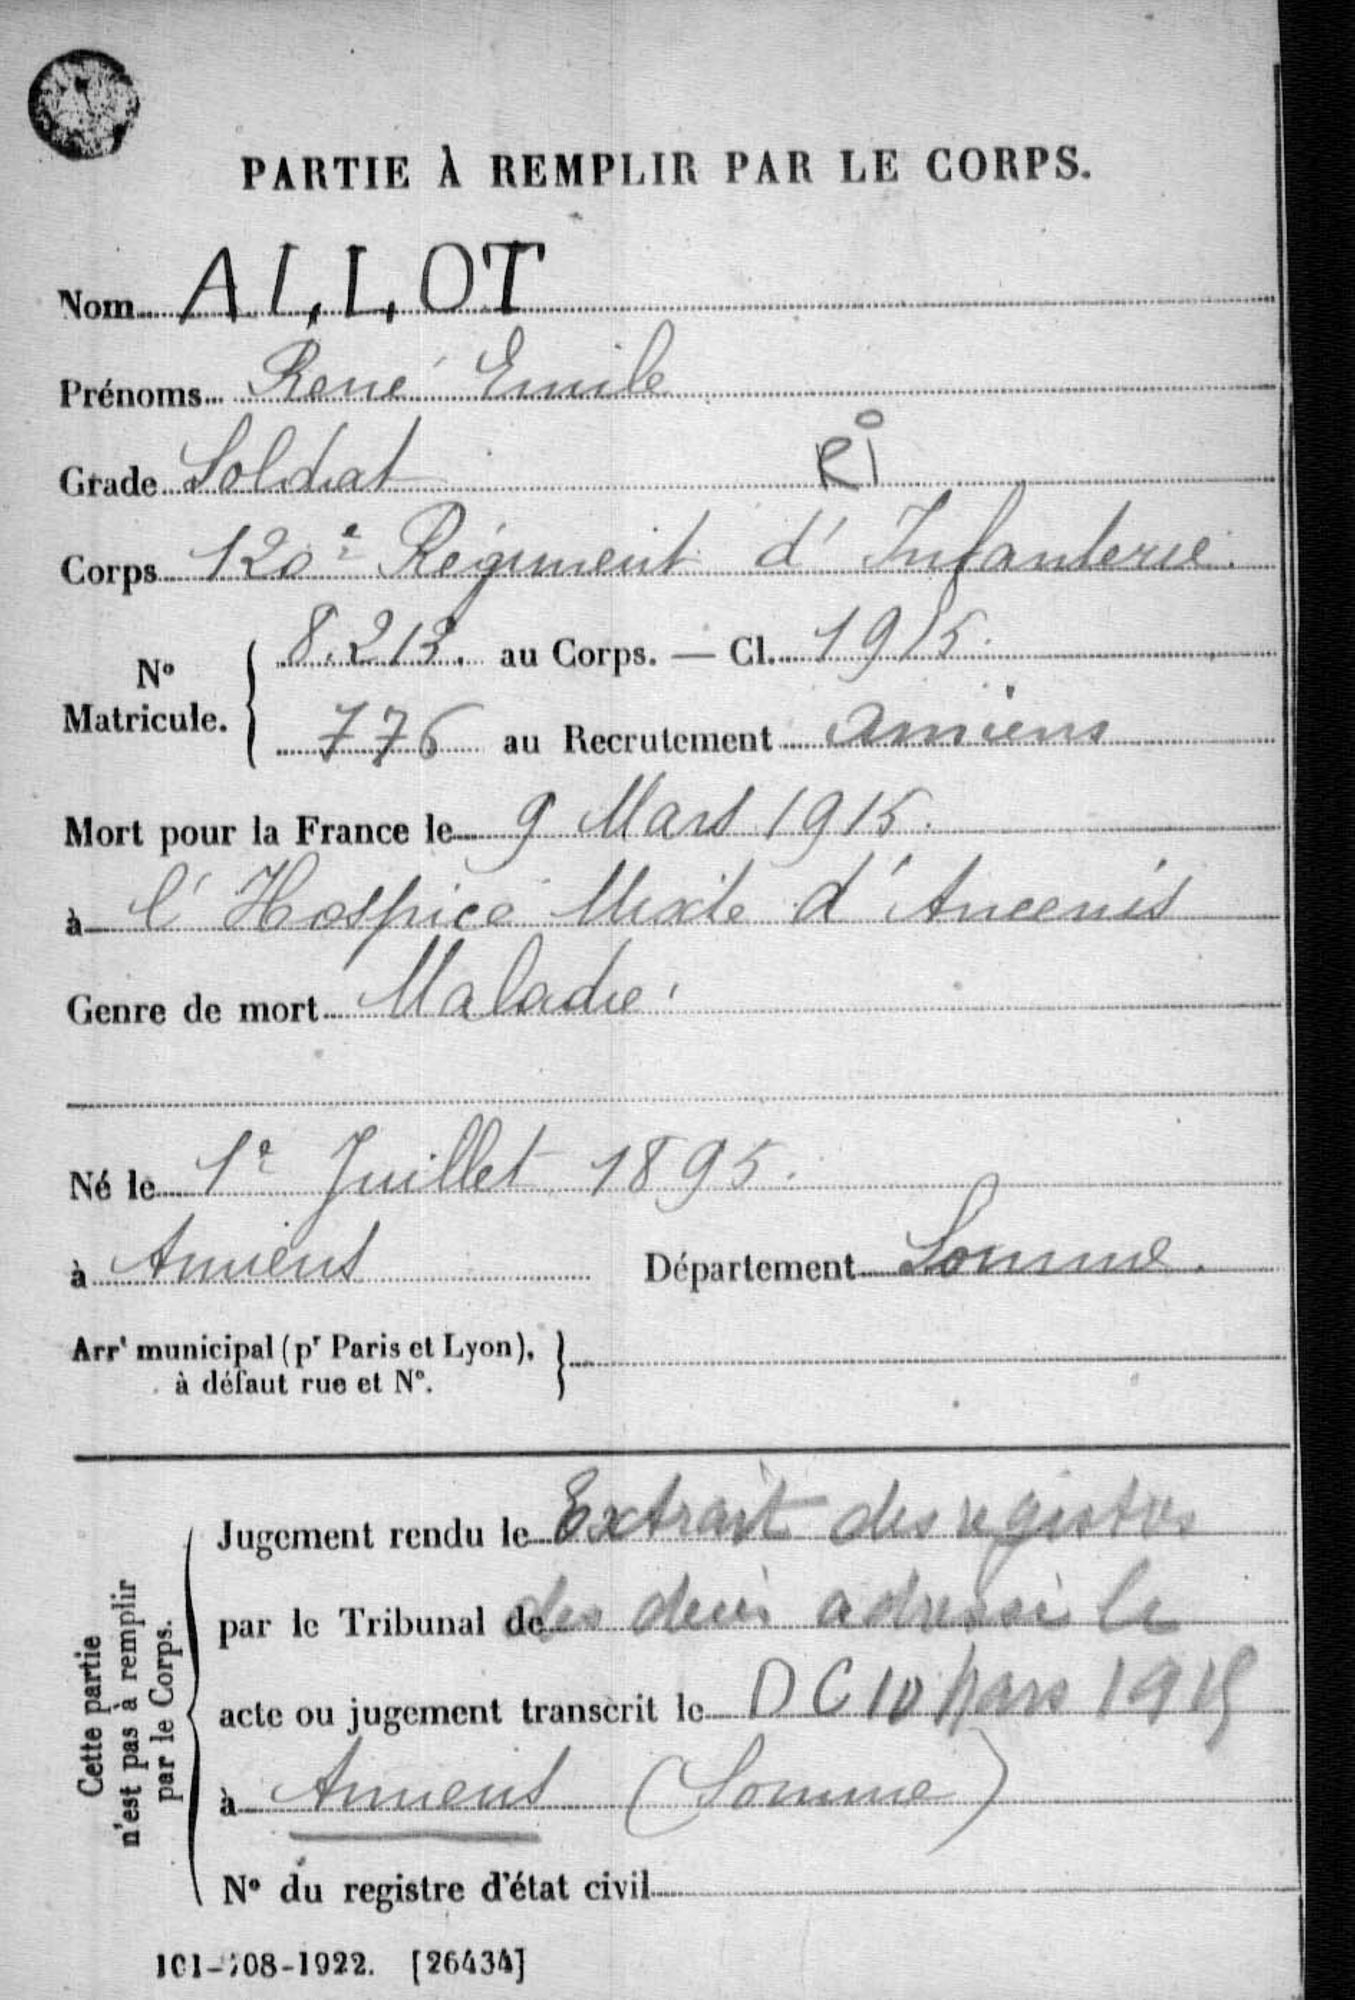 PARTIE À REMPLIR PAR LE CORPS.
Nom ALLOT
Prénoms René Emile
Grade Soldat RI
Corps 120e Régiment d'Infanterie.
N° Matricule. { 8.213. au Corps. — Cl. 1915.
776 au Recrutement Amiens
Mort pour la France le 9 Mars 1915.
à l'Hospice Mixte d'Ancenis
Genre de mort Maladie
Né le 1er Juillet 1895.
à Amiens Département Somme.
Arrt municipal (pr Paris et Lyon), }
à défaut rue et N°.
Cette partie
n'est pas à remplir
par le Corps.
Jugement rendu le Extrait des registres
par le Tribunal de des adressé le
acte ou jugement transcrit le D C 10 Mars 1915
à Amiens (Somme)
N° du registre d'état civil
101-708-1922. [26434]